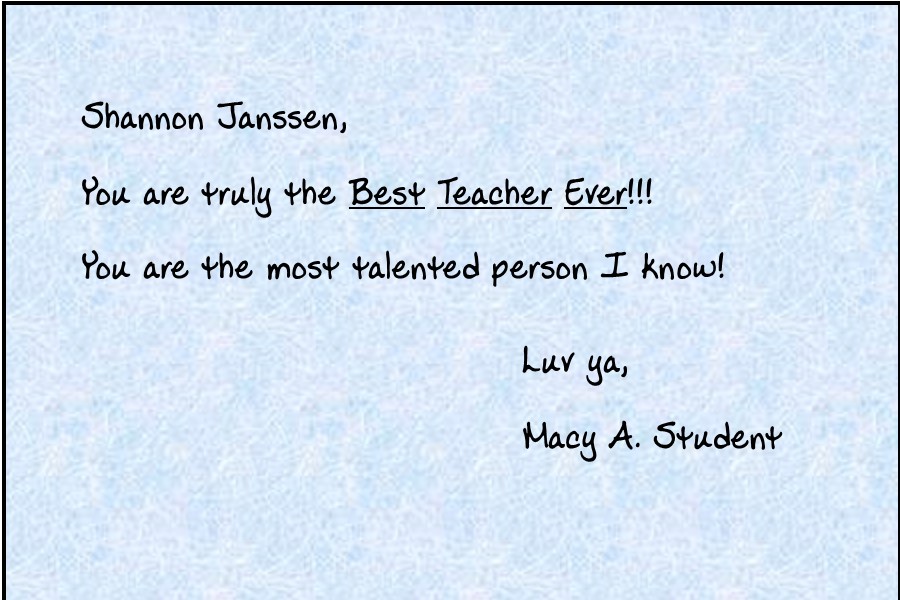 Shannon Janssen,
You are truly the Best Teacher Ever!!!
You are the most talented person I know!
Luv ya,
Macy A. Student